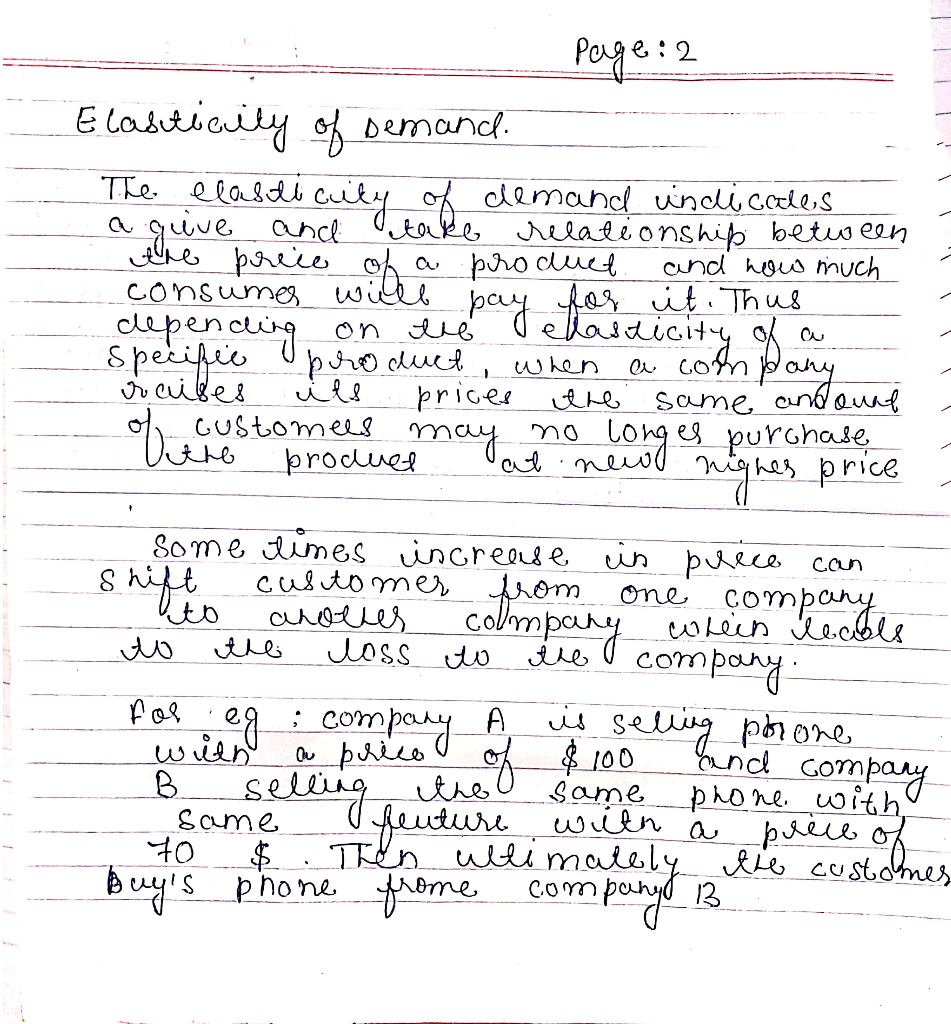 Page : 2
Elasticity of Demand.
The elasticity of demand indicates
a give and take relationship between
the price of a product and how much
consumer will pay for it. Thus
depending on the elasticity of a
specific product, when a company
raises its prices the same amount
of customers may no longer purchase
the product at new higher price
Some times increase in price can
shift customer from one company
to another company which leads
to the loss to the company.
For eg : company A is selling phone
with a price of $ 100 and company
B selling the same phone with
same feuture with a price of
70 $ . Then ultimately the customer
Buy's phone frome company B